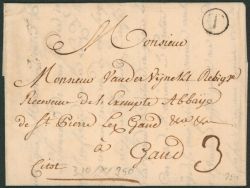 Monsieur
Monsieur Vander Vynckt
Receveur de l Exempte Abbaye
de St Pierre lez Gand
à Gand 3
Citot